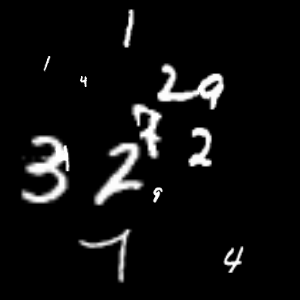 1
1 4
2 9
7
3 1 2 2
9
7 4